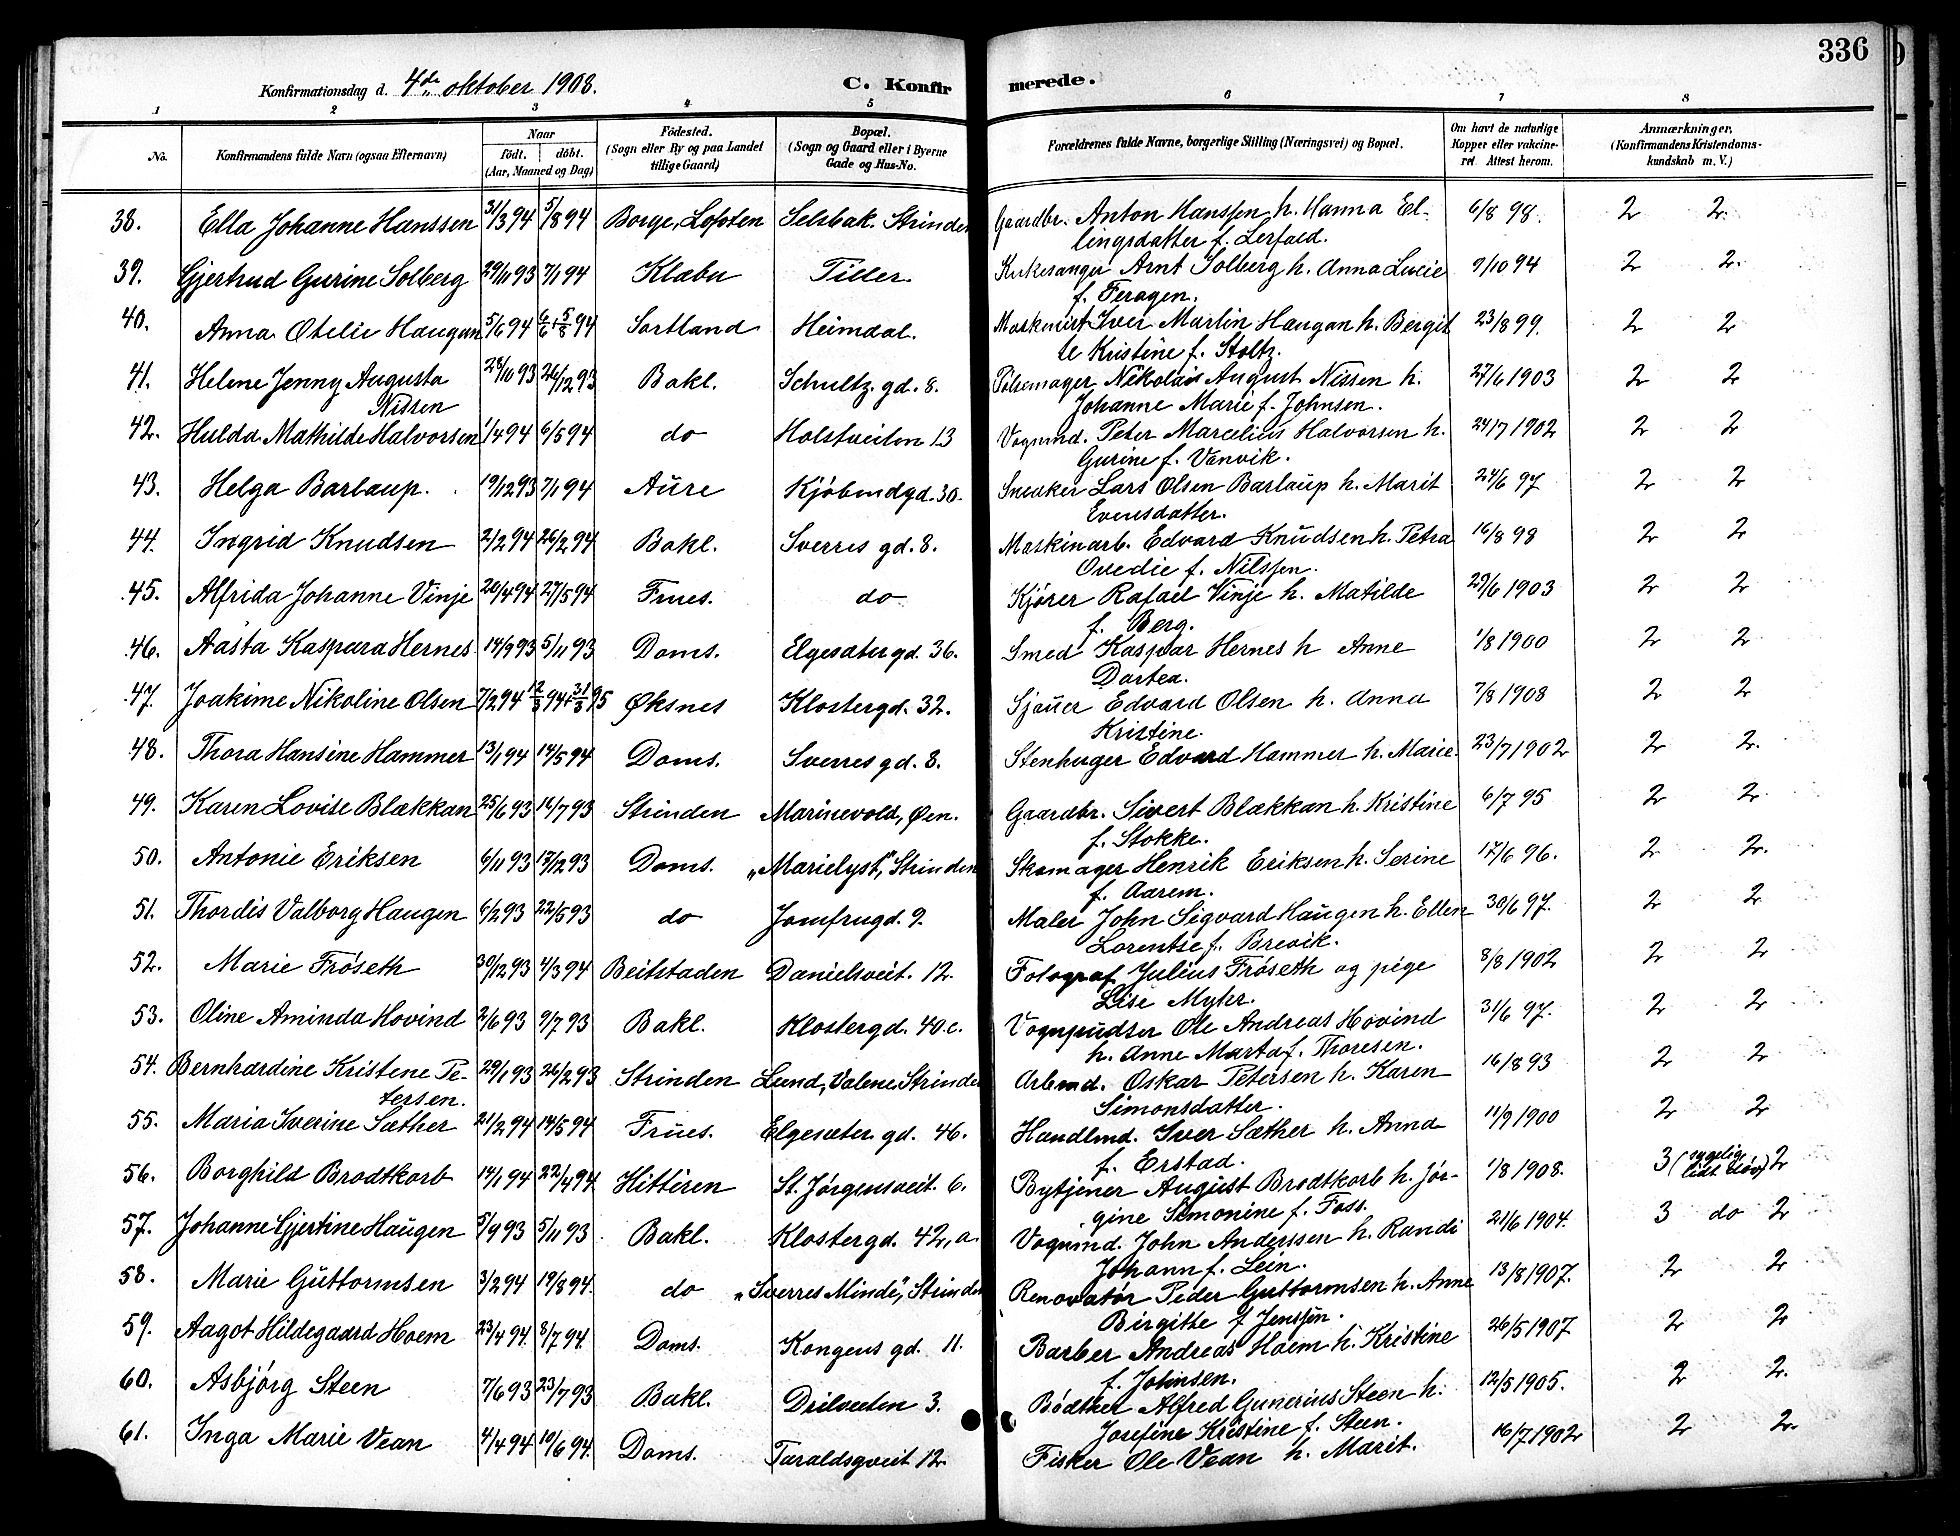 336
Konfirmationsdag d. 4de oktober 1908.
C. Konfirmerede.
1 2 3 4 5 6 7 8
No.
Konfirmandens fulde Navn (ogsaa Efternavn)
Naar
födt. döbt.
(Aar, Maaned og Dag)
Födested.
(Sogn eller By og paa Landet
tillige Gaard)
Bopæl.
(Sogn og Gaard eller i Byerne
Gade og Hus-No.
Forældrenes fulde Navne, borgerlige Stilling (Næringsvei) og Bopæl.
Om havt de naturlige
Kopper eller vakcine-
ret. Attest herom.
Anmærkninger.
(Konfirmandens Kristendoms-
kundskab m. V.)
38. Ella Johanne Hanssen 31/3 94 5/8 94 Borge, Lofoten Selsbak. Strinden Gaardbr. Anton Hanssen h. Hanna El- 6/8 98. 2 2.
lingsdatter f. Lerfald.
39. Gjertrud Gurine Solberg 29/11 93 7/1 94 Klæbu Tiller. Kirkesanger Arnt Solberg h. Anna Lucie 9/10 94 2 2.
f. Feragen.
40. Anna Otelie Haugan 5/6 94 6/6+5/8 94 Sortland Heimdal. Maskinist Iver Martin Haugan h. Bergit 23/8 99. 2 2
te Kristine f. Stoltz.
41. Helene Jenny Augusta 28/10 93 26/12 93 Bakl. Schultz gd. 8. Pølsemager Nikolai August Nissen h. 27/6 1903 2 2
Nissen
Johanne Marie f. Johnsen.
42. Hulda Mathilde Halvorsen 1/4 94 6/5 94 do Holstveiten 13 Vognmd. Peter Marcelius Halvorsen h. 24/7 1902 2 2
Gurine f. Vanvik.
43. Helga Barlaup. 19/12 93 7/1 94 Aure Kjøbmdgd. 30. Snedker Lars Olsen Barlaup h. Marit 24/6 97 2 2
Evensdatter.
44. Ingrid Knudsen 2/2 94 26/2 94 Bakl. Sverres gd. 8. Maskinarb. Edvard Knudsen h. Petra 16/8 98 2 2
Ovedie f. Nilssen.
45. Alfrida Johanne Vinje 20/4 94 27/5 94 Frues. do Kjører Rafael Vinje h. Matilde 29/6 1903 2 2
f. Berg.
46. Aasta Kaspara Hernes 14/9 93 5/11 93 Doms. Elgesæter gd. 36. Smed Kaspar Hernes h Anne 1/8 1900 2 2
Dortea.
47. Joakime Nikoline Olsen 7/2 94 12/3 94+31/3 95 Øksnes Klostergd. 32. Sjauer Edvard Olsen h. Anna 7/8 1908 2 2
Kristine.
48. Thora Hansine Hammer 13/1 94 14/5 94 Doms. Sverres gd. 8. Stenhuger Edvard Hammer h. Marie. 23/7 1902 2 2.
49. Karen Lovise Blækkan 25/6 93 16/7 93 Strinden Marinevold, Øen. Gaardbr. Sivert Blækkan h. Kristine 6/7 95 2 2.
f. Stokke.
50. Antonie Eriksen 6/11 93 17/12 93 Doms. „Marielyst", Strinden Skomager Henrik Eriksen h. Serine 17/6 96. 2 2.
f. Aarem.
51. Thordis Valborg Haugen 6/2 93 22/5 93 do Jomfrugd. 9. Maler John Sigvard Haugen h. Ellen 30/6 97. 2 2
Lorentse f. Brevik.
52. Marie Frøseth 30/12 93 4/3 94 Beitstaden Danielsveit. 12. Fotograf Julius Frøseth og pige 8/8 1902 2 2
Lise Myhr.
53. Oline Aminda Hovind 2/6 93 9/7 93 Bakl. Klostergd. 40.c. Vognpudser Ole Andreas Hovind 31/6 97. 2 2
h. Anne Marta f. Thoresen.
54. Bernhardine Kristene Pe- 29/1 93 26/2 93 Strinden Lund, Valene Strinden Arbmd. Oskar Petersen h. Karen 16/8 93 2 2
tersen.
Simonsdatter.
55. Maria Iverine Sæther 21/2 94 14/5 94 Frues. Elgesæter gd. 46. Handlmd. Iver Sæther h. Anna 11/9 1900 2 2
f. Erstad.
56. Borghild Brodtkorb 14/1 94 22/4 94 Hitteren St. Jørgensveit. 6. Bytjener August Brodtkorb h. Jør- 1/8 1908. 3 (sygelig lidt døv) 2
gine Simonine f. Foss.
57. Johanne Gjertine Haugen 5/9 93 5/11 93. Bakl. Klostergd. 42,a. Vognmd. John Anderssen h. Randi 21/6 1904. 3 do 2
Johann f. Lein.
58. Marie Guttormsen 3/2 94 19/8 94. do „Sverres Minde", Strinden Renovatør Peder Guttormsen h. Anne 13/8 1907. 2 2
Birgitte f Jenssen.
59. Aagot Hildegaard Hoem 23/4 94. 8/7 94. Doms. Kongens gd. 11. Barber Andreas Hoem h. Kristine 26/5 1907 2 2
f. Johnsen.
60. Asbjørg Steen 7/6 93 23/7 93 Bakl. Drilveiten 3. Bødtker Alfred Gunerius Steen h. 12/5 1905. 2 2.
Josefine Kristine f. Steen.
61. Inga Marie Vean 4/4 94 10/6 94. Doms. Taraldsgveit 12. Fisker Ole Vean h. Marit. 16/7 1902 2 2.